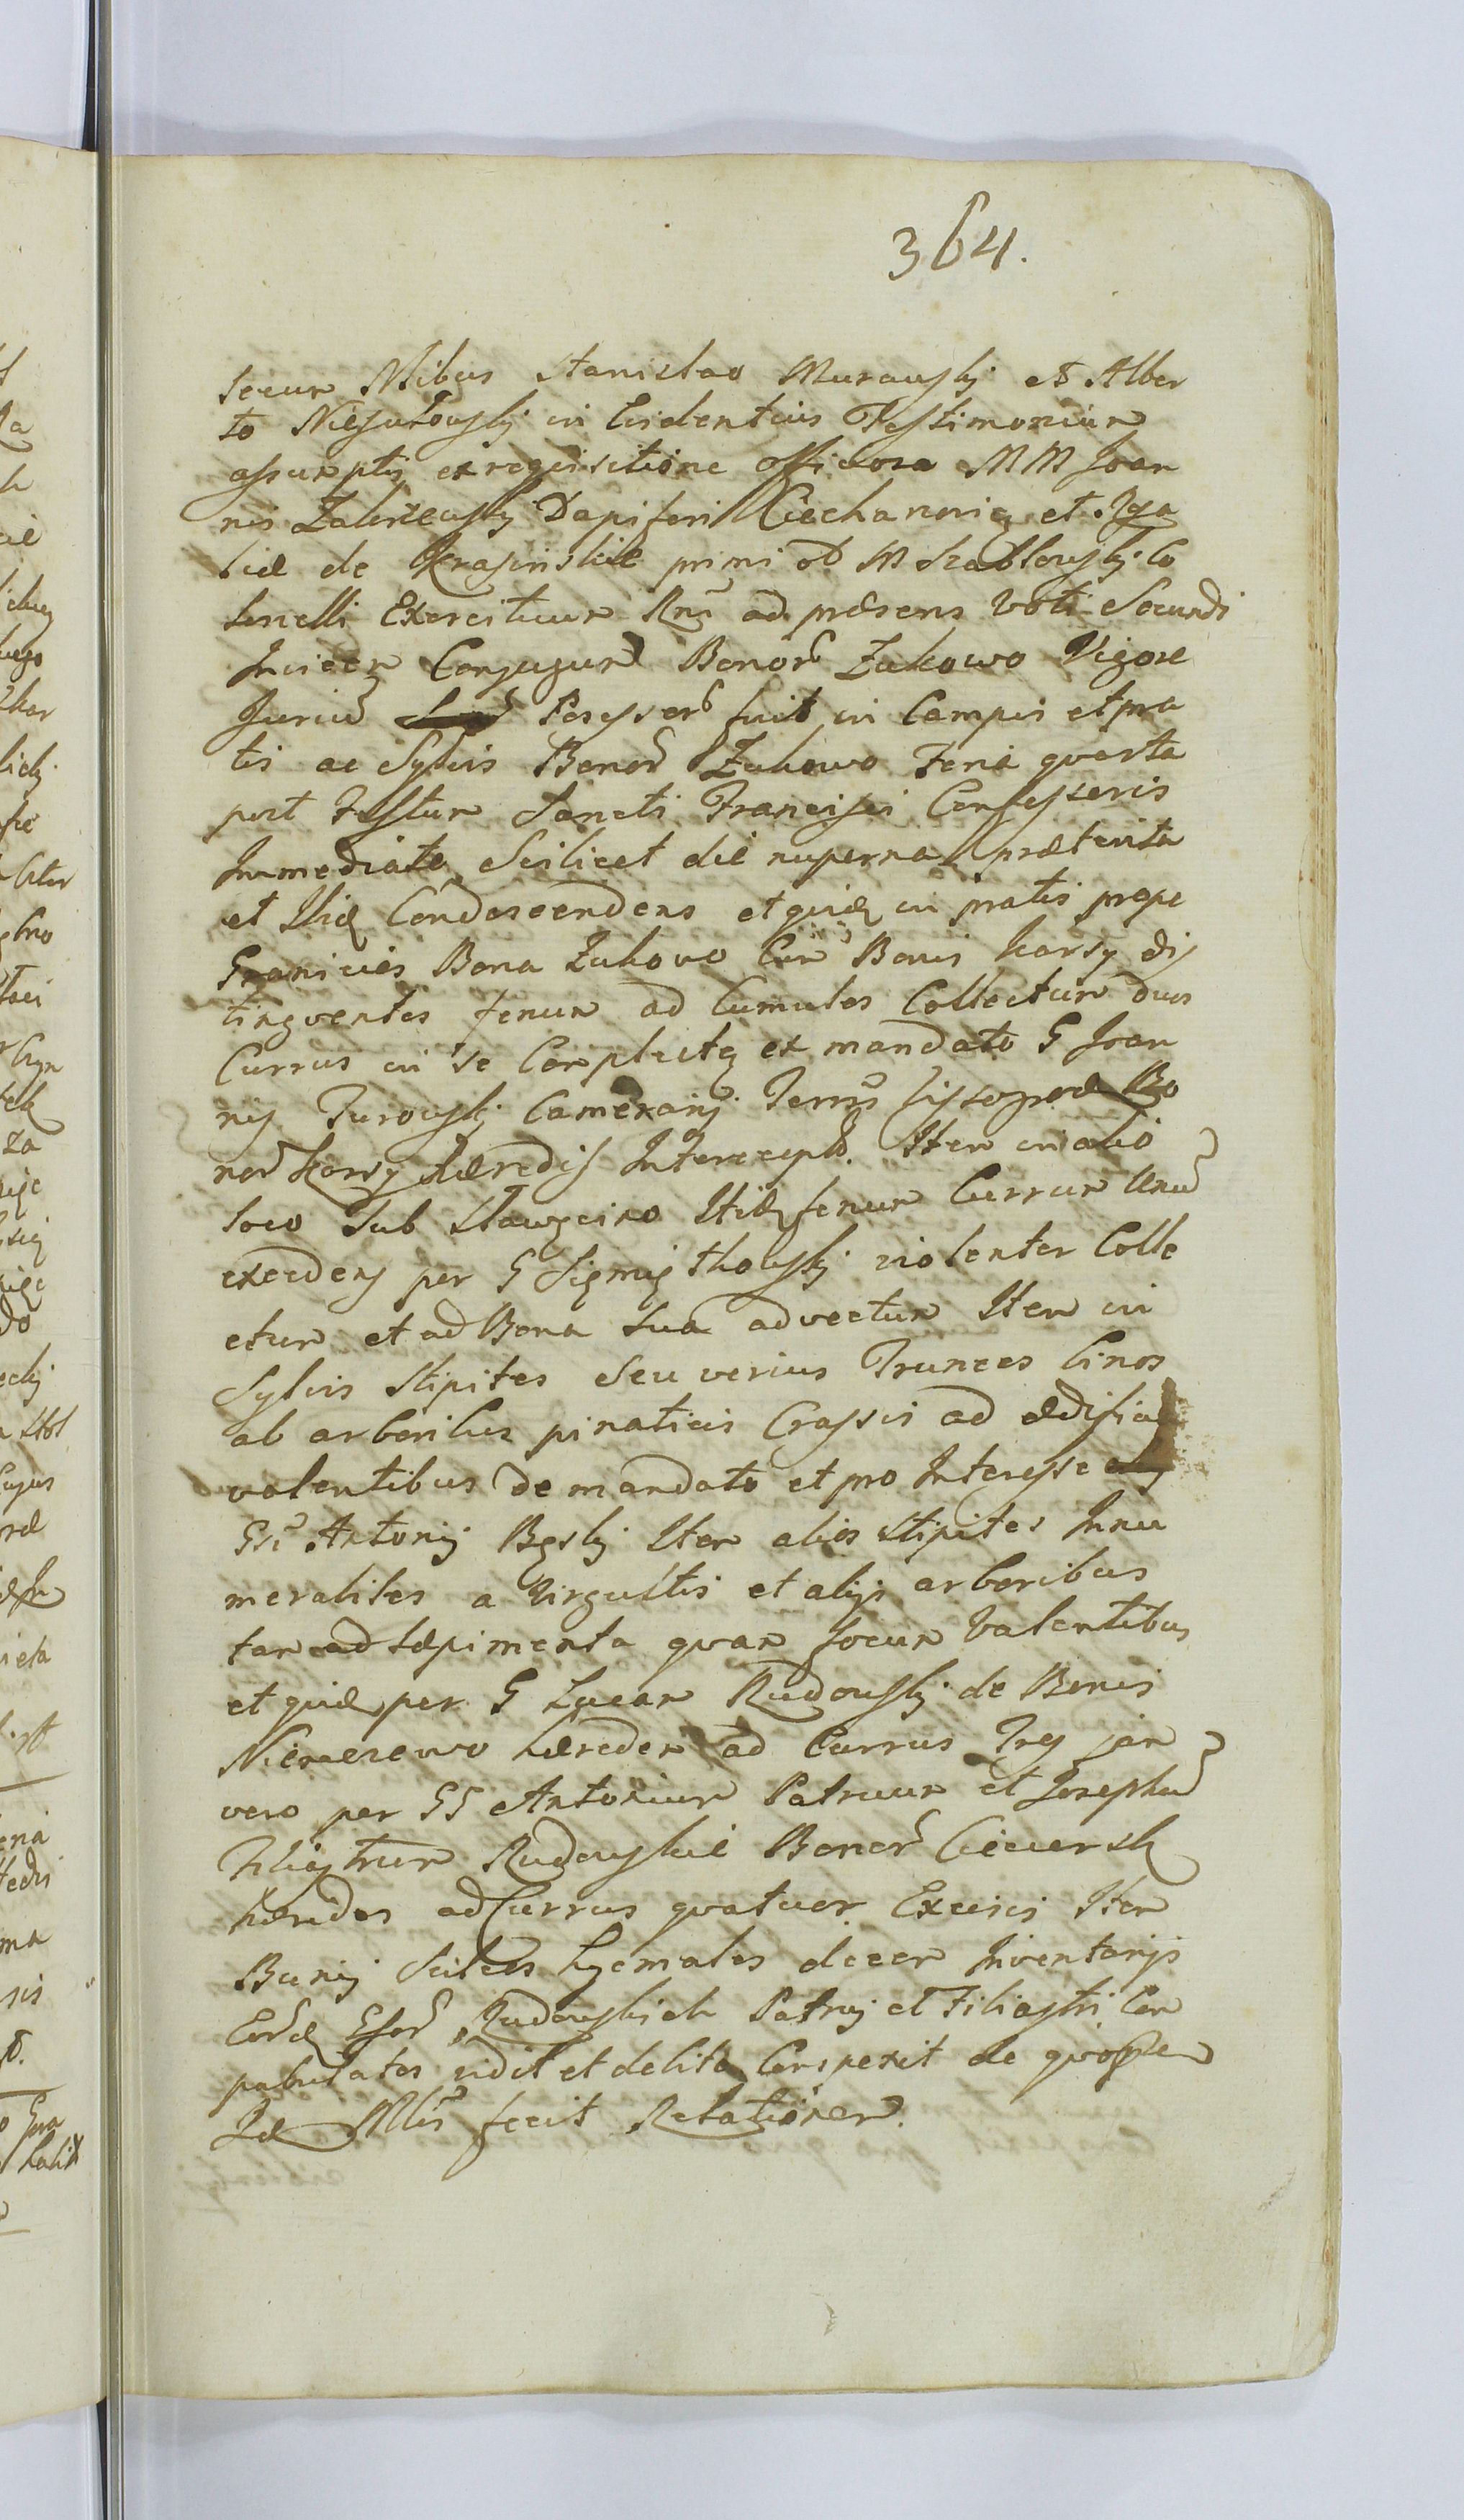 364.
secum Nlibus Stanislao Murawskj et Alber
to Niesułowskj in Evidentius Testimonium
assumptis ex reqvisitione officiosa MM Joan
nis Zakrzewskj Dapiferi Ciechanoviē et Roza
liæ de Krasinskie primi et M Szablowskj Co
lonelli Exercituum Rnī ad præsens Voti Secundi
Invicem Conjugum Bonorˢ Zukowo Vigore
Jurium Possessorˢ fuit in Campis et pra
tis ac Sylvis Bonorˢ Zukowo Feria qvarta
post Festum Sancti Francisci Confessoris
Immediate Scilicet die nuperna præterita
et Ibiđ Condescendens et qviđ in pratis prope
Granicies Bona Zukowo Cum Bonis Karsy dis
tingventes fenum ad Cumulos Collectum duos
Currus in Se Complectē ex mandato G Joan
nis Turowskj Camerarij Terræ Bo
norˢ Karsy Hæredis Interceptˢ. Item in alio
loco Sub Itiđ fenum Currum Unū
excedens per G violenter Colle
ctum et ad Bona Sua advectum Item in
Sylvis Stipites Seu verius Truncos
ab arboribus pinaticis Crassis ad ædificia
valentibus de mandato et pro Interesse
Gsī Antonij Item alios Stipites Innu
merabiles a Virgultis et alijs arboribus
tam ad Sæpimenta qvam focum Valentibus
et qviđ per G Lucam Rudowskj de Bonis
hæredem ad Currus Tres jam
vero per GG Antonium Patruum et Josephū
Filiastrum Rudowskie Bonorˢ Ciemersk
hæredes ad Currus qvatuor Excisis Item
Scites hyemales decem Inventarijs
Eorđ Gsorˢ Rudowskich Patruj et Filiastri Con
pabulatos vidit et debite Conspexit de qvo
Iđ Mlīs fecit Relationem.